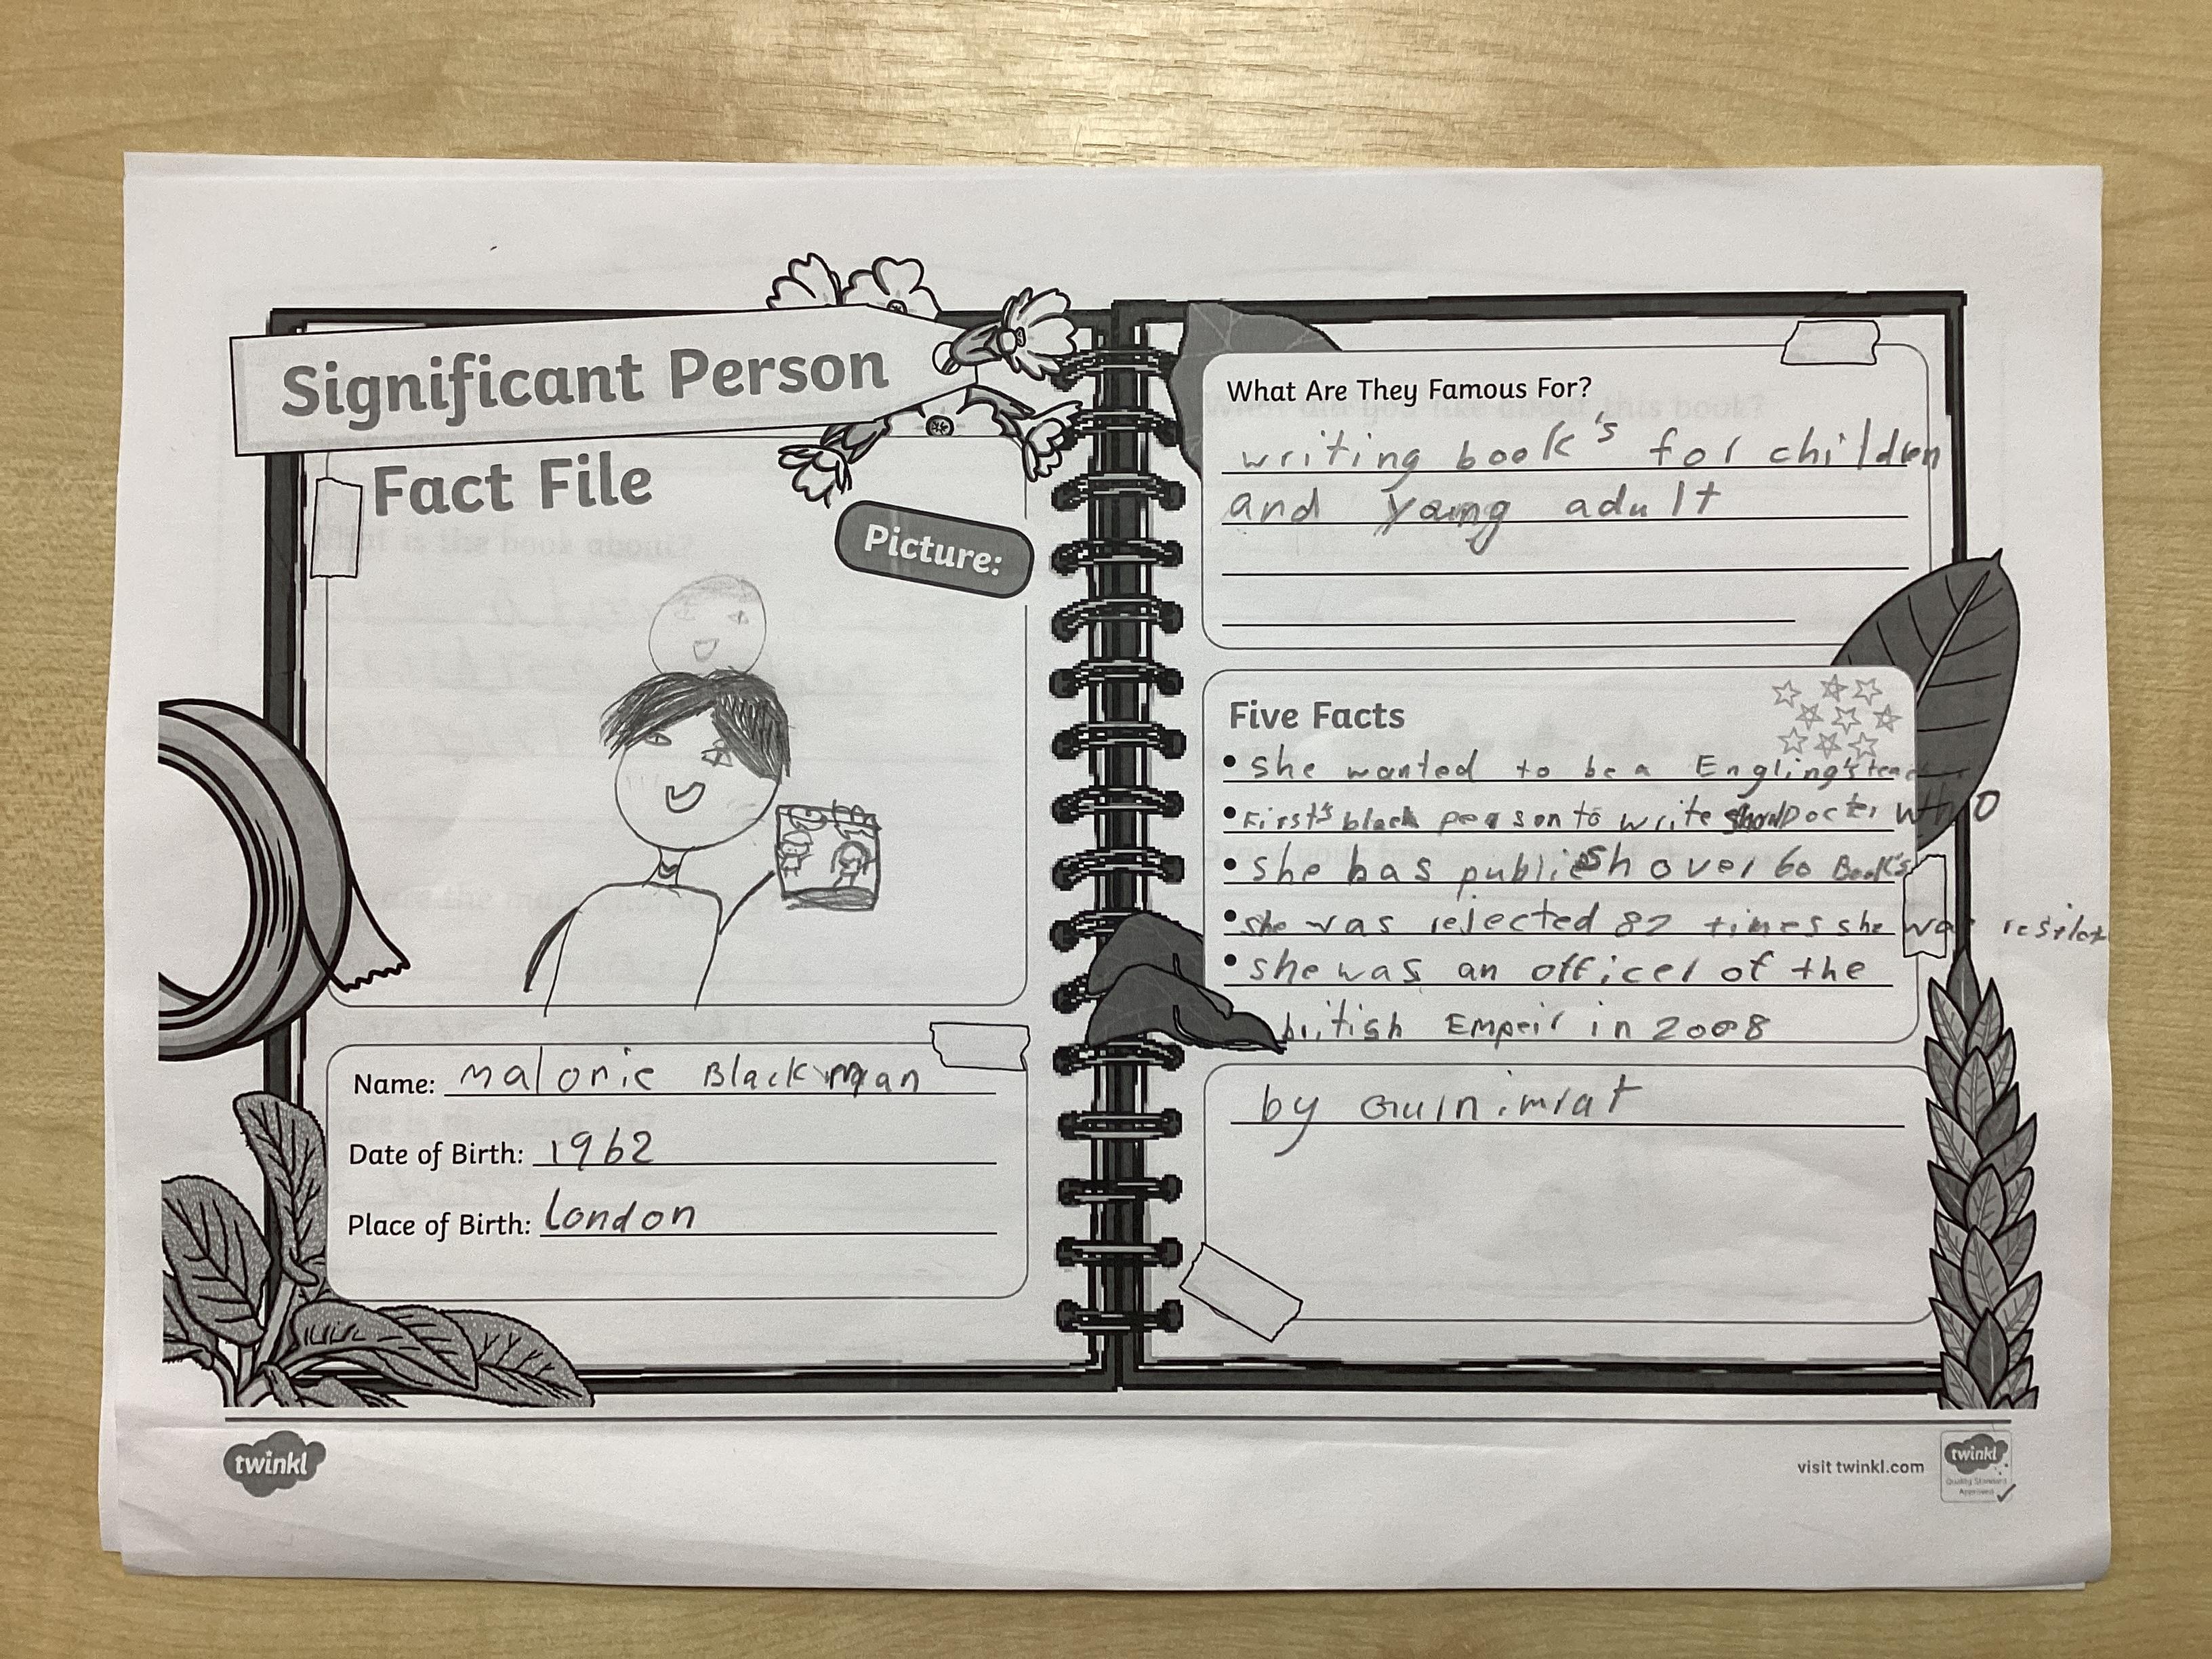 Significant Person
Fact File
Picture:
Name: Malorie Blackman
Date of Birth: 1962
Place of Birth: London
What Are They Famous For?
writing book's for children
and young adult
Five Facts
• she wanted to be a Engling's teac
• First's black person to write Docter Who
• she has publish over 60 Book's
• she was rejected 82 times she was
• she was an officer of the
british Empeir in 2008
by Gurnimrat
twinkl
visit twinkl.com
twinkl
Quality Standard
Approved